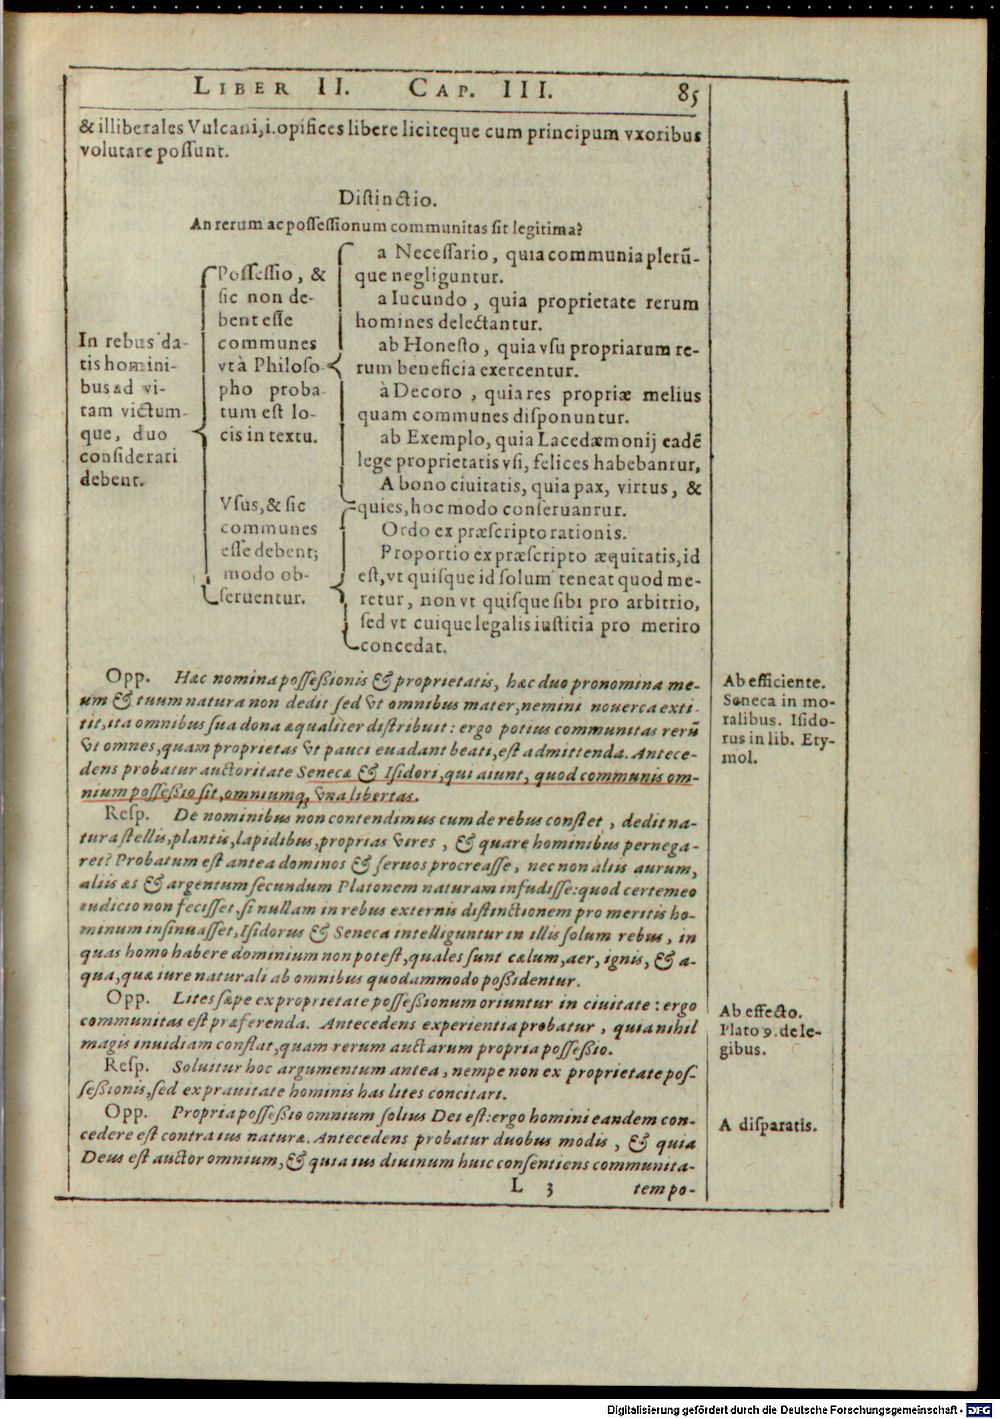 LIBER II. CAP. III. 85
& illiberales Vulcani, i. opifices libere liciteque cum principum vxoribus
volutare possunt.
Distinctio.
An rerum ac possessionum communitas sit legitima?
In rebus da-
tis homini-
bus ad vi-
tam victum-
que, duo
considerari
debent.
Possessio, &
sic non de-
bent esse
communes
vt à Philoso-
pho proba-
tum est lo-
cis in textu.
a Necessario, quia communia plerũ-
que negliguntur.
a Iucundo, quia proprietate rerum
homines delectantur.
ab Honesto, quia vsu propriarum re-
rum beneficia exercentur.
à Decoro, quia res propriæ melius
quam communes disponuntur.
ab Exemplo, quia Lacedæmonij eadẽ
lege proprietatis vsi, felices habebantur,
A bono ciuitatis, quia pax, virtus, &
quies, hoc modo conseruantur.
Vsus, & sic
communes
esse debent;
modo ob-
seruentur.
Ordo ex præscripto rationis.
Proportio ex præscripto æquitatis, id
est, vt quisque id solum teneat quod me-
retur, non vt quisque sibi pro arbitrio,
sed vt cuique legalis iustitia pro merito
concedat.
Opp. Hæc nomina possessionis & proprietatis, hæc duo pronomina me-
um & tuum natura non dedit sed vt omnibus mater, nemini nouerca exti-
tit, ita omnibus sua dona æqualiter distribuit: ergo potius communitas rerũ
vt omnes, quam proprietas vt pauci euadant beati, est admittenda. Antece-
dens probatur auctoritate Senecæ & Isidori, qui aiunt, quod communis om-
nium possessio sit, omniumq; vna libertas.
Resp. De nominibus non contendimus cum de rebus constet, dedit na-
tura stellis, plantis, lapidibus, proprias vires, & quare hominibus pernega-
ret? Probatum est antea dominos & seruos procreasse, nec non aliis aurum,
aliis æs & argentum secundum Platonem naturam infudisse: quod certe meo
iudicio non fecisset, si nullam in rebus externis distinctionem pro meritis ho-
minum insinuasset, Isidorus & Seneca intelliguntur in illis solum rebus, in
quas homo habere dominium non potest, quales sunt cælum, aer, ignis, & a-
qua, quæ iure naturali ab omnibus quodammodo possidentur.
Opp. Lites sæpe ex proprietate possessionum oriuntur in ciuitate: ergo
communitas est præferenda. Antecedens experientia probatur, quia nihil
magis inuidiam conflat, quam rerum auctarum propria possessio.
Resp. Soluitur hoc argumentum antea, nempe non ex proprietate pos-
sessionis, sed ex prauitate hominis has lites concitari.
Opp. Propria possessio omnium solius Dei est: ergo homini eandem con-
cedere est contra ius naturæ. Antecedens probatur duobus modis, & quia
Deus est auctor omnium, & quia ius diuinum huic consentiens communita-
L 3 tem po-
Ab efficiente.
Seneca in mo-
ralibus. Isido-
rus in lib. Ety-
mol.
Ab effecto.
Plato 9. de le-
gibus.
A disparatis.
Digitalisierung gefördert durch die Deutsche Forschungsgemeinschaft - DFG